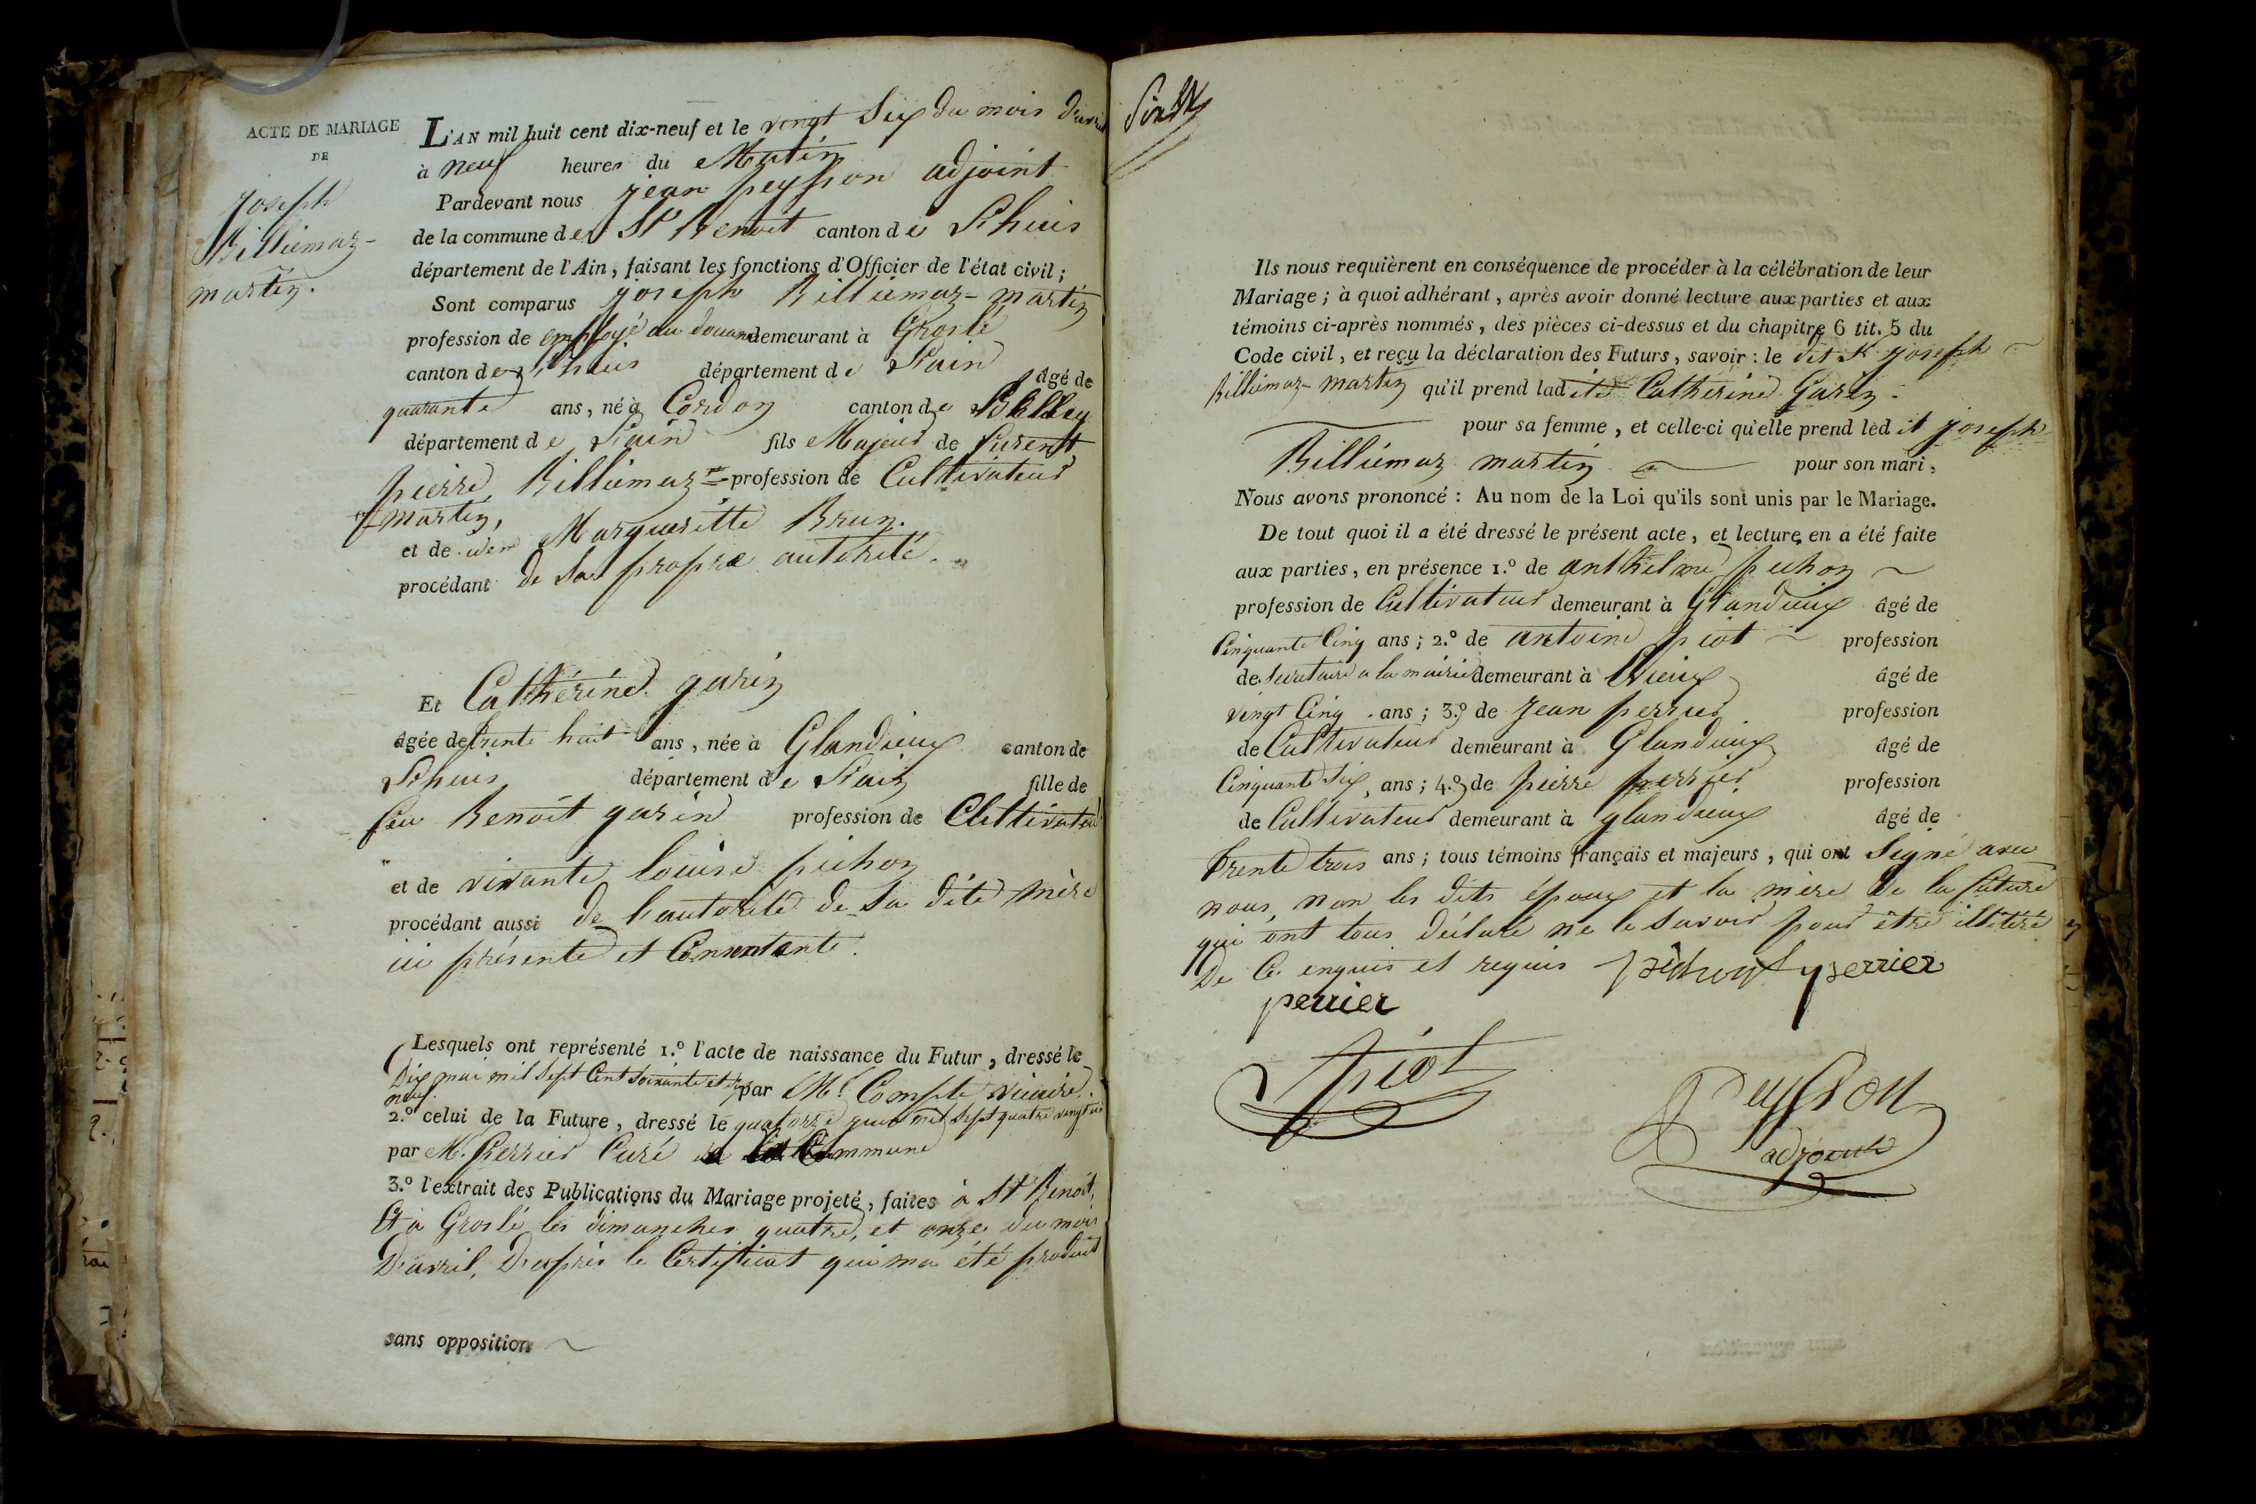 ACTE DE MARIAGE
DE
joseph
Billiemaz-
martin.
L'AN mil huit cent dix-neuf et le vingt Six du mois D'avril
à neuf heures du Matin
Pardevant nous jean peysson adjoint
de la commune de St Benoit canton de Lhuis
département de l'Ain, faisant les fonctions d'Officier de l'état civil;
Sont comparus joseph Billiemaz-martin
profession de employé au douane demeurant à Groslé
canton de Lhuis département de L'ain âgé de
quarante ans, né à Cordon canton de Belley
département de L'ain fils Majeur de
pierre Billiemaz profession de Cultivateur
martin,
et de Margueritte Brun.
procédant de Sa propre autorité.
Et Cathérine garin
âgée de trente huit ans, née à Glandieux canton de
Lhuis département de L'ain fille de
feu Benoit garin profession de Cultivateur
et de vivante louise pichon
procédant aussi de l'autorité de Sa dite mère
ici présente et Consentante.
Lesquels ont représenté 1.º l'acte de naissance du Futur, dressé le
Dix mai mil Sept Cent Soixante et dix par Mr Compte vicaire.
neuf.
2.º celui de la Future, dressé le quatorze mil Sept quatre vingt
par M. Perrier Curé de la Commune
3.º l'extrait des Publications du Mariage projeté, faites à St Benoit,
Et à Groslé les dimanches quatre, et onze du mois
D'avril, D'après le Certificat qui m'a été produit
sans opposition
Ils nous requièrent en conséquence de procéder à la célébration de leur
Mariage; à quoi adhérant, après avoir donné lecture aux parties et aux
témoins ci-après nommés, des pièces ci-dessus et du chapitre 6 tit. 5 du
Code civil, et reçu la déclaration des Futurs, savoir: le dit Sr joseph
Billiemaz-martin qu'il prend ladite Catherine Garin-
pour sa femme, et celle-ci qu'elle prend ledit joseph
Billiemaz martin pour son mari,
Nous avons prononcé: Au nom de la Loi qu'ils sont unis par le Mariage.
De tout quoi il a été dressé le présent acte, et lecture en a été faite
aux parties, en présence 1.º de anthelme pichon
profession de Cultivateur demeurant à Glandieux âgé de
Cinquante Cinq ans; 2.º de antoine piot profession
de Secretaire a la mairie demeurant à âgé de
vingt Cinq ans; 3.º de jean perrier profession
de Cultivateur demeurant à Glandieux âgé de
Cinquante Six ans; 4.º de pierre perrier profession
de Cultivateur demeurant à glandieux âgé de
trente trois ans; tous témoins français et majeurs, qui ont Signé avec
nous, non les dits époux et la mère de la future
qui ont tous déclaré ne le Savoir pour être illitéré
De Ce enquis et requis pichon perrier
perrier
piot
Peysson
adjoint